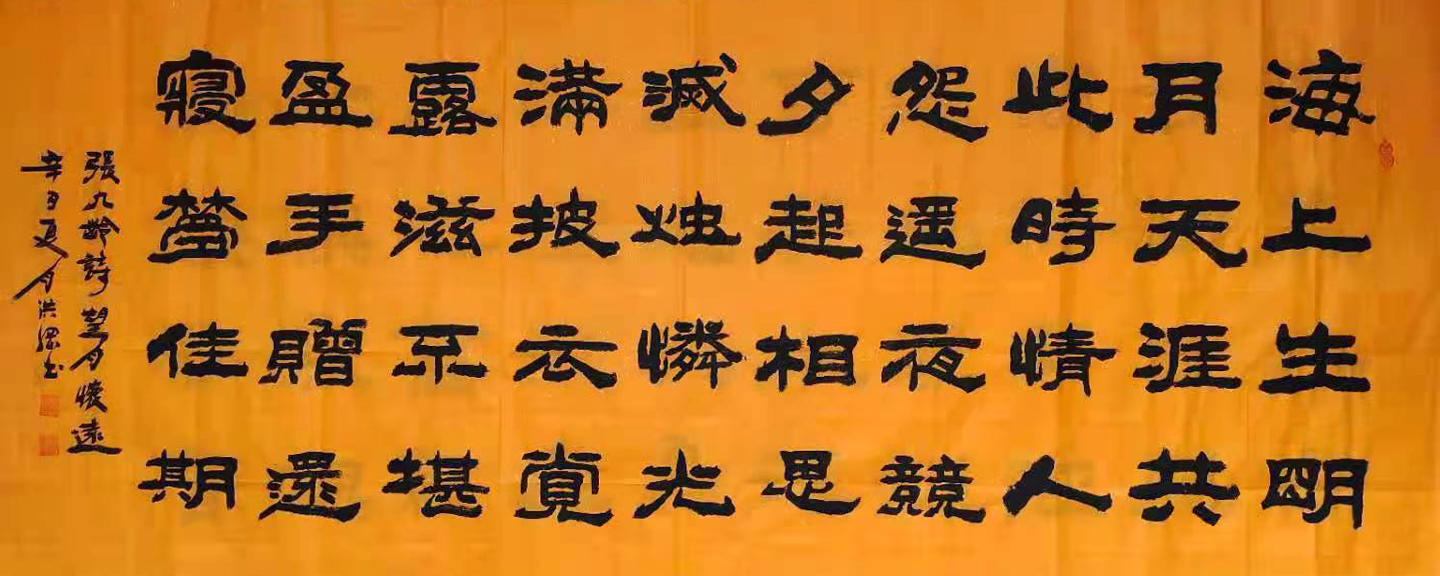 海上生明
月天涯共
此時情人
怨遥夜競
夕起相思
滅烛憐光
滿披云覚
露滋不堪
盈手贈還
寝夢佳期
張九齡詩望月懷遠
辛丑夏月洪书